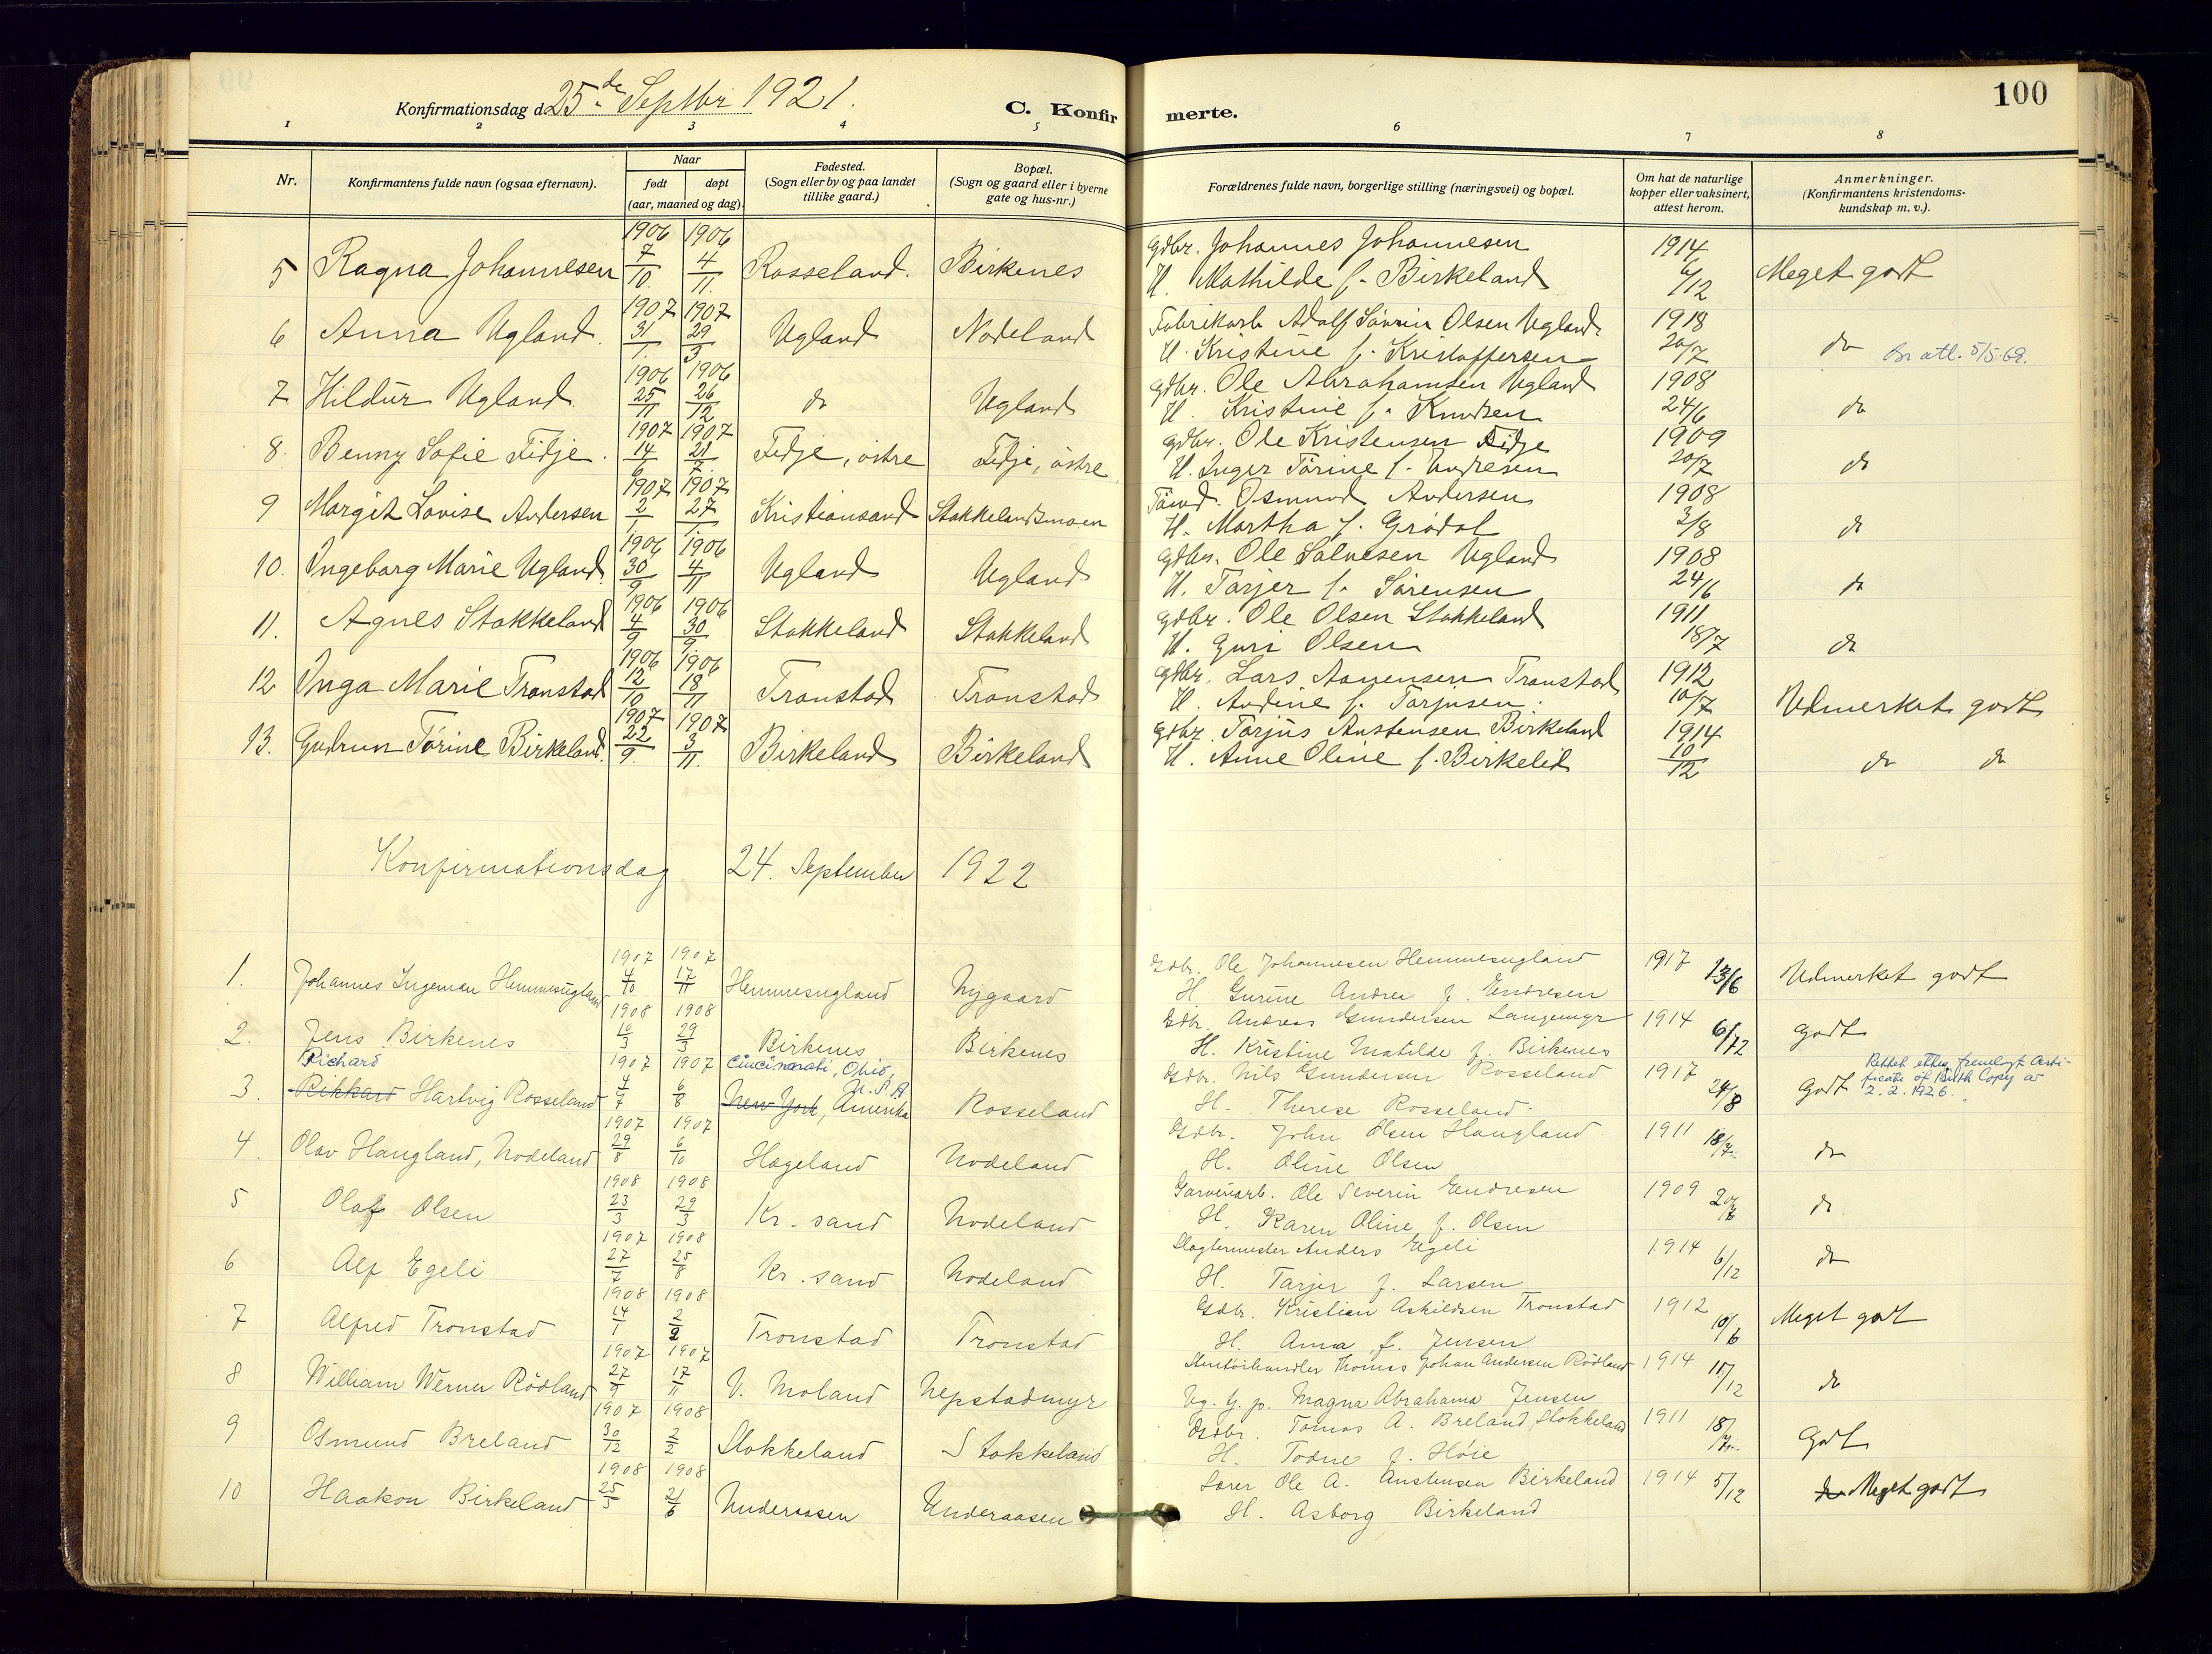 100
Konfirmationsdag d. 25de Septbr 1921.
C. Konfirmerte.
1 2 3 4 5 6 7 8
Nr.
Konfirmantens fulde navn (ogsaa efternavn).
Naar
født
døpt
(aar, maaned og dag).
Fødested.
(Sogn eller by og paa landet
tillike gaard.)
Bopæl.
(Sogn og gaard eller i byerne
gate og hus-nr.)
Forældrenes fulde navn, borgerlige stilling (næringsvei) og bopæl.
Om hat de naturlige
kopper eller vaksinert,
attest herom.
Anmerkninger.
(Konfirmantens kristendoms-
kundskap m. v.).
5 Ragna Johannesen 1906 7/10. 1906 4/11. Rosseland. Birkenes Gdbr. Johannes Johannesen 1914 6/12 Meget godt
H. Mathilde f. Birkeland
6 Anna Ugland. 1907 31/1. 1907 29/3 Ugland Nodeland Fabrikarb Adolf Søvrin Olsen Ugland. 1918 20/7 do Br atl. 5/5-69.
H. Kristine f. Kristoffersen
7 Hildur Ugland. 1906 25/11 1906 26/12 do Ugland gdbr. Ole Abrahamsen Ugland 1908 24/6 do
H. Kristine f. Knudsen
8. Benny Sofie Fidje. 1907 14/6 1907 21/7. Fidje, østre Fidje, østre gdbr. Ole Kristensen Fidje 1909 20/7 do
H. Inger Tørine f. Andresen
9 Margit Lovise Andersen 1907 2/1. 1907 27/1. Kristiansand Stokkelandsmoen Tømd. Osmund Andersen 1908 3/8 do
H. Martha f. Grødal
10. Ingeborg Marie Ugland. 1906 30/9 1906 4/11 Ugland Ugland gdbr. Ole Salvesen Ugland 1908 24/6 do
H. Tarjer f. Sørensen
11. Agnes Stokkeland 1906 4/9 1906 30/9. Stokkeland Stokkeland gdbr. Ole Olsen Stokkeland 1911 18/7 do
H. Guri Olsen
12 Inga Marie Tronstad 1906 12/10 1906 18/11 Tronstad Tronstad gdbr. Lars Aanensen Tronstad 1912 10/7 Udmerket godt
H. Andine f. Tarjusen.
13. Gudrun Tørine Birkeland. 1907 22/9. 1907 3/11. Birkeland Birkeland gdbr. Tarjus Anstensen Birkeland 1914 10/12 do do
H. Anne Oline f. Birkelid
Konfirmationsdag 24. September 1922
1. Johannes Ingeman Hemmesugland 1907 4/10 1907 17/11 Hemmesugland Nygaard Gdbr. Ole Johannesen Hemmesugland 1917 13/6 Udmerket godt
H. Gurine Andrea f. Endresen
2. Jens Birkenes 1908 10/3 1908 29/3 Birkenes Birkenes Gdbr. Andreas Gundersen Langemyr 1914 6/12 Godt
H. Kristine Matilde f. Birkenes
3. Richard Rikkard Hartvig Rosseland 1907 4/7 1907 6/8 Cincinnati, Ohio, U.S.A New York, Amerika Rosseland Gdbr. Nils Gundersen Rosseland 1917 24/8 Godt Rettet efter fremlagt Certificate of Birth Copy av 2.2.1926.
H. Therese Rosseland.
4. Olav Haugland, Nodeland 1907 29/8 1907 6/10 Hageland Nodeland Gdbr. John Olsen Haugland 1911 18/7. do
H. Oline Olsen
5 Olaf Olsen 1908 23/3 1908 29/3 Kr.sand Nodeland Garveriarb. Ole Severin Endresen 1909 20/7 do
H. Karen Oline f. Olsen
6 Alf Egeli 1907 27/7 1908 25/8 Kr.sand Nodeland Slagtermester Anders Egeli 1914 6/12 do
H. Tarjer f. Larsen
7 Alfred Tronstad 1908 14/1 1908 2/2 Tronstad Tronstad Gdbr. Kristian Askildsen Tronstad 1912 10/6 Meget godt
H. Anna f. Jensen
8 William Werner Rødland 1907 27/9 1907 17/11 V. Moland Nepstadmyr Stentøihandler Thomas Johan Andersen Rödland 1914 11/12 do
Ug. G. p. Magna Abrahama Jensen
9 Osmund Breland 1907 30/12 1908 2/2 Stokkeland Stokkeland Gdbr. Tomas A. Breland, Stokkeland 1911 18/7. Godt
H. Todne f. Høie
10 Haakon Birkeland 1908 25/5 1908 21/6 Underaasen Underaasen Lærer Ole A. Anstensen Birkeland 1914 5/12 do Meget godt
H. Asborg Birkeland